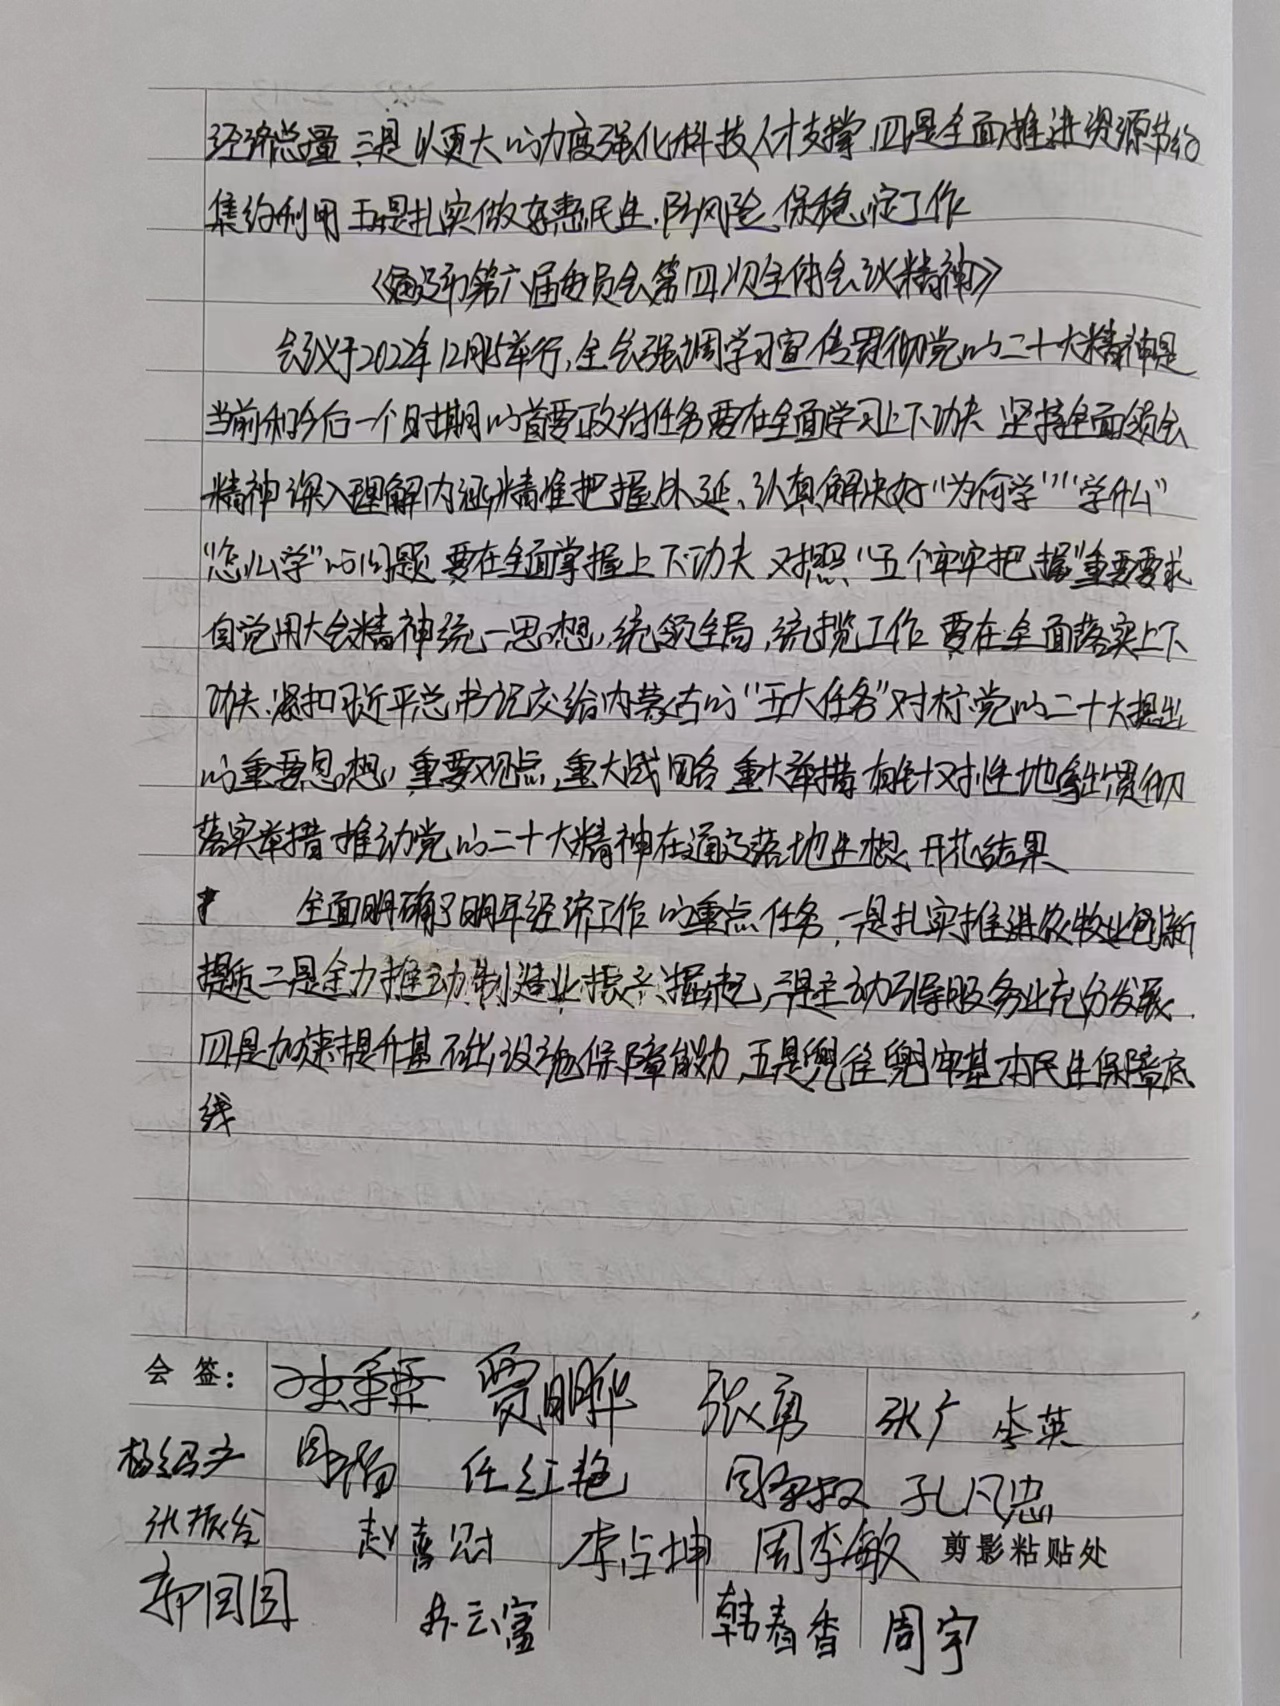 经济总量 三是以更大的力度强化科技人才支撑 四是全面推进资源节约
集约利用 五是扎实做好惠民生、防风险、保稳定工作
《通辽市第六届委员会第四次全体会议精神》
会议于2022年12月15举行,全会强调学习宣传贯彻党的二十大精神是
当前和今后一个时期的首要政治任务 要在全面学习上下功夫 坚持全面领会
精神 深入理解内涵,精准把握外延、认真解决好“为何学”“学什么”
“怎么学”的问题 要在全面掌握上下功夫 对照“五个牢牢把握”重要要求
自觉用大会精神统一思想,统领全局,统揽工作 要在全面落实上下
功夫.紧扣习近平总书记交给内蒙古的“五大任务”对标党的二十大提出
的重要思想,重要观点,重大战略 重大举措 有针对性地拿出贯彻
落实举措 推动党的二十大精神在通辽落地生根、开花结果
全面明确了明年经济工作的重点任务,一是扎实推进农牧业创新
提质 二是全力推动制造业振兴崛起,三是主动引导服务业充分发展
四是加速提升基础设施保障能力,五是兜住兜牢基本民生保障底
线
会 签: 贾明华 张勇 张广 李英
周杨 任红艳 孔凡忠
张振发 李占坤 周李敏 剪影粘贴处
郭国图 苏云富 韩春香 周宇